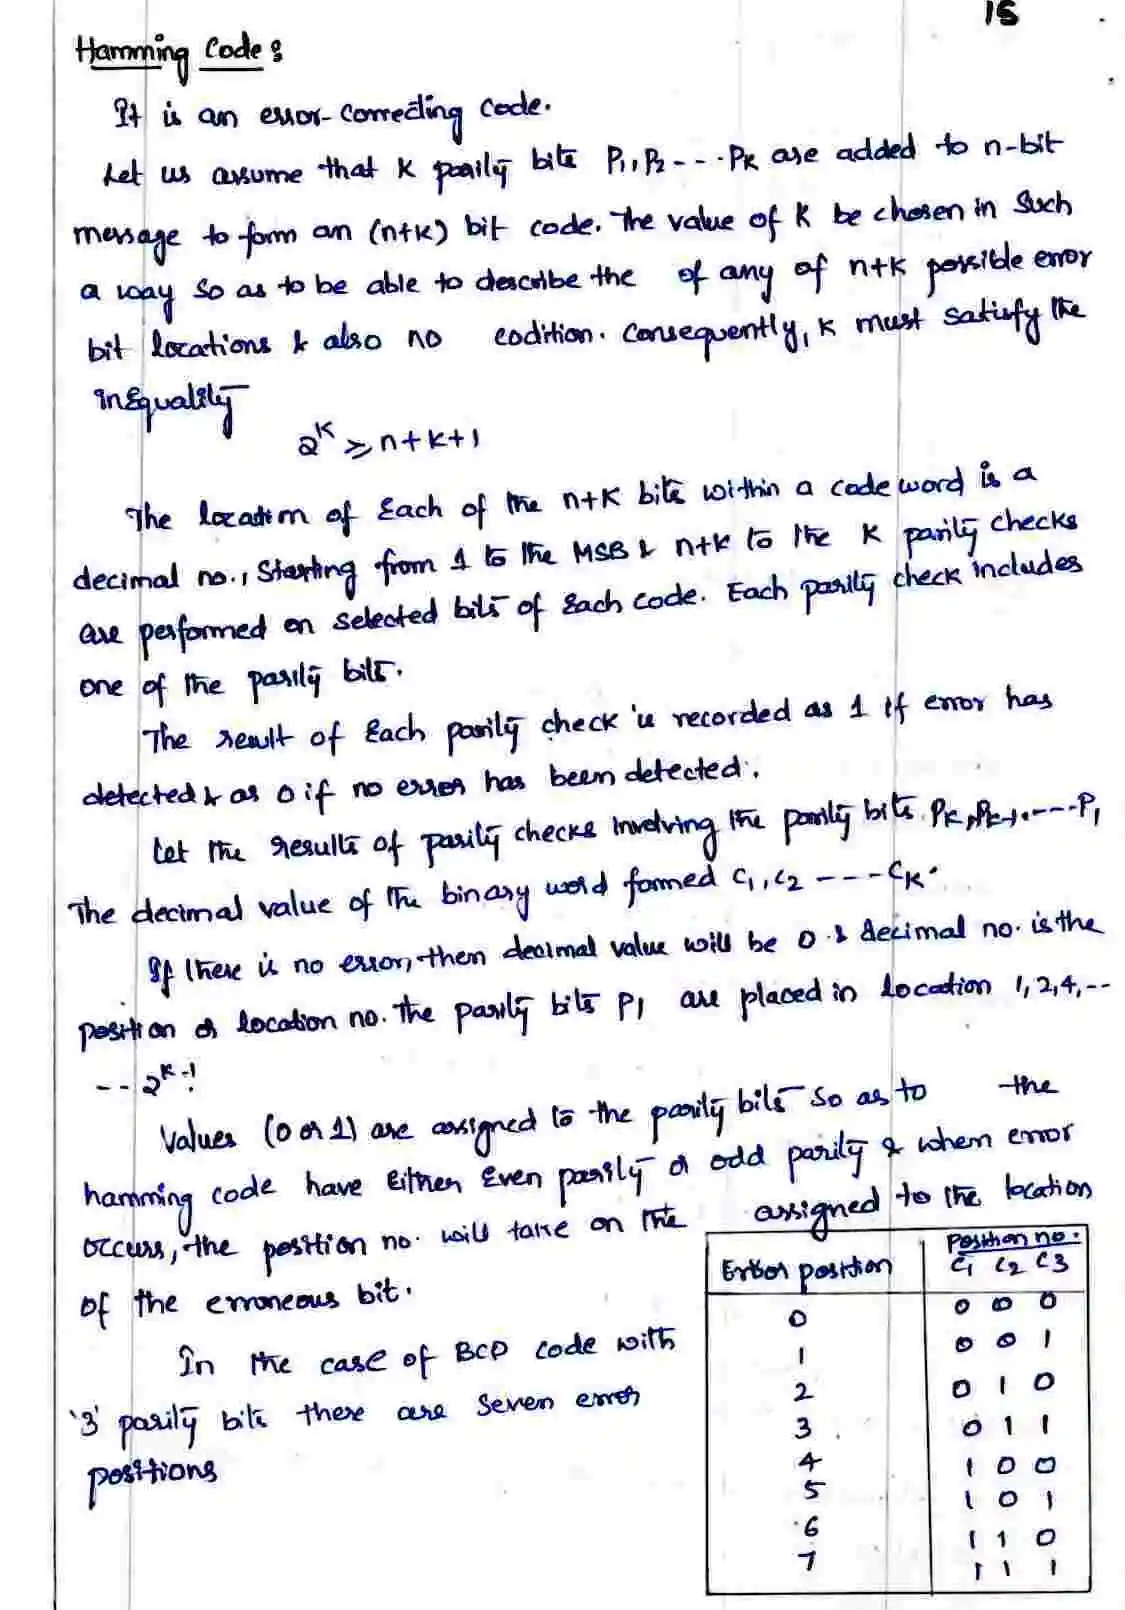 15
Hamming Code :
It is an error-correcting code.
Let us assume that K parity bits P1, P2 - - - PK are added to n-bit
message to form an (n+K) bit code. The value of K be chosen in such
a way so as to be able to describe the of any of n+K possible error
bit locations & also no codition. Consequently, K must satisfy the
inequality
2^K ≥ n+K+1
The location of Each of the n+K bits within a code word is a
decimal no., Starting from 1 to the MSB & n+K to the K parity checks
are performed on selected bits of Each code. Each parity check includes
one of the parity bits.
The result of Each parity check is recorded as 1 if error has
detected & as 0 if no error has been detected.
Let the results of parity checks involving the parity bits PK, PK-1, ---- P1
The decimal value of the binary word formed C1, C2 ---- CK.
If there is no error, then decimal value will be 0 & decimal no. is the
position or location no. The parity bits P1 are placed in location 1, 2, 4, --
-- 2^K-1.
Values (0 or 1) are assigned to the parity bits so as to the
hamming code have Either Even parity or odd parity & when error
occurs, the position no. will take on the assigned to the location
of the erroneous bit.
In the case of BCD code with
'3' parity bits there are seven error
positions
Position no.
Error position C1 C2 C3
0 0 0 0
1 0 0 1
2 0 1 0
3 0 1 1
4 1 0 0
5 1 0 1
6 1 1 0
7 1 1 1